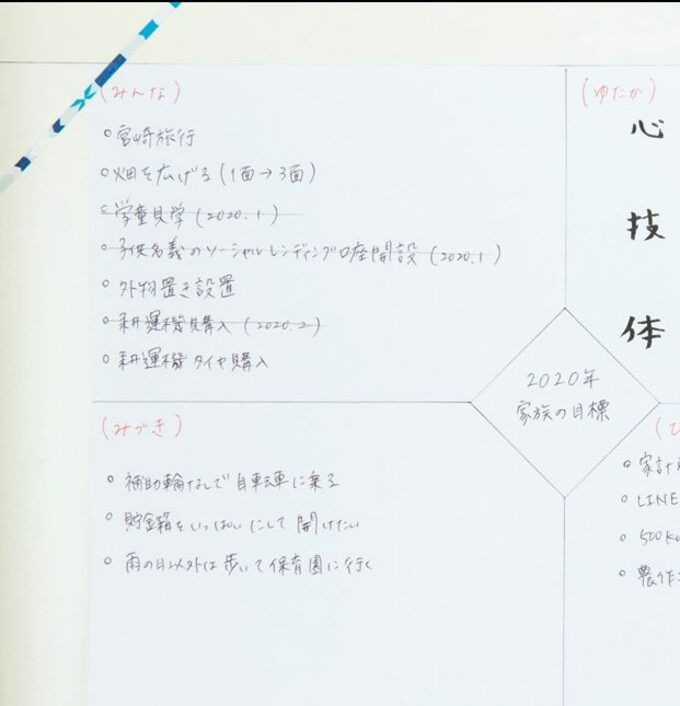 (みんな)
○宮崎旅行
○畑を広げる(1面→3面)
○学童見学(2020.1)
○子供名義のソーシャルレンディング口座開設(2020.1)
○外物置き設置
○耕運機購入(2020.2)
○耕運機タイヤ購入
(ゆたか)
心
技
体
2020年
家族の目標
(みづき)
○補助輪なしで自転車に乗る
○貯金箱をいっぱいにして開けたい
○雨の日以外は歩いて保育園に行く
(ひ
○家計
○LINE
○500K
○農作